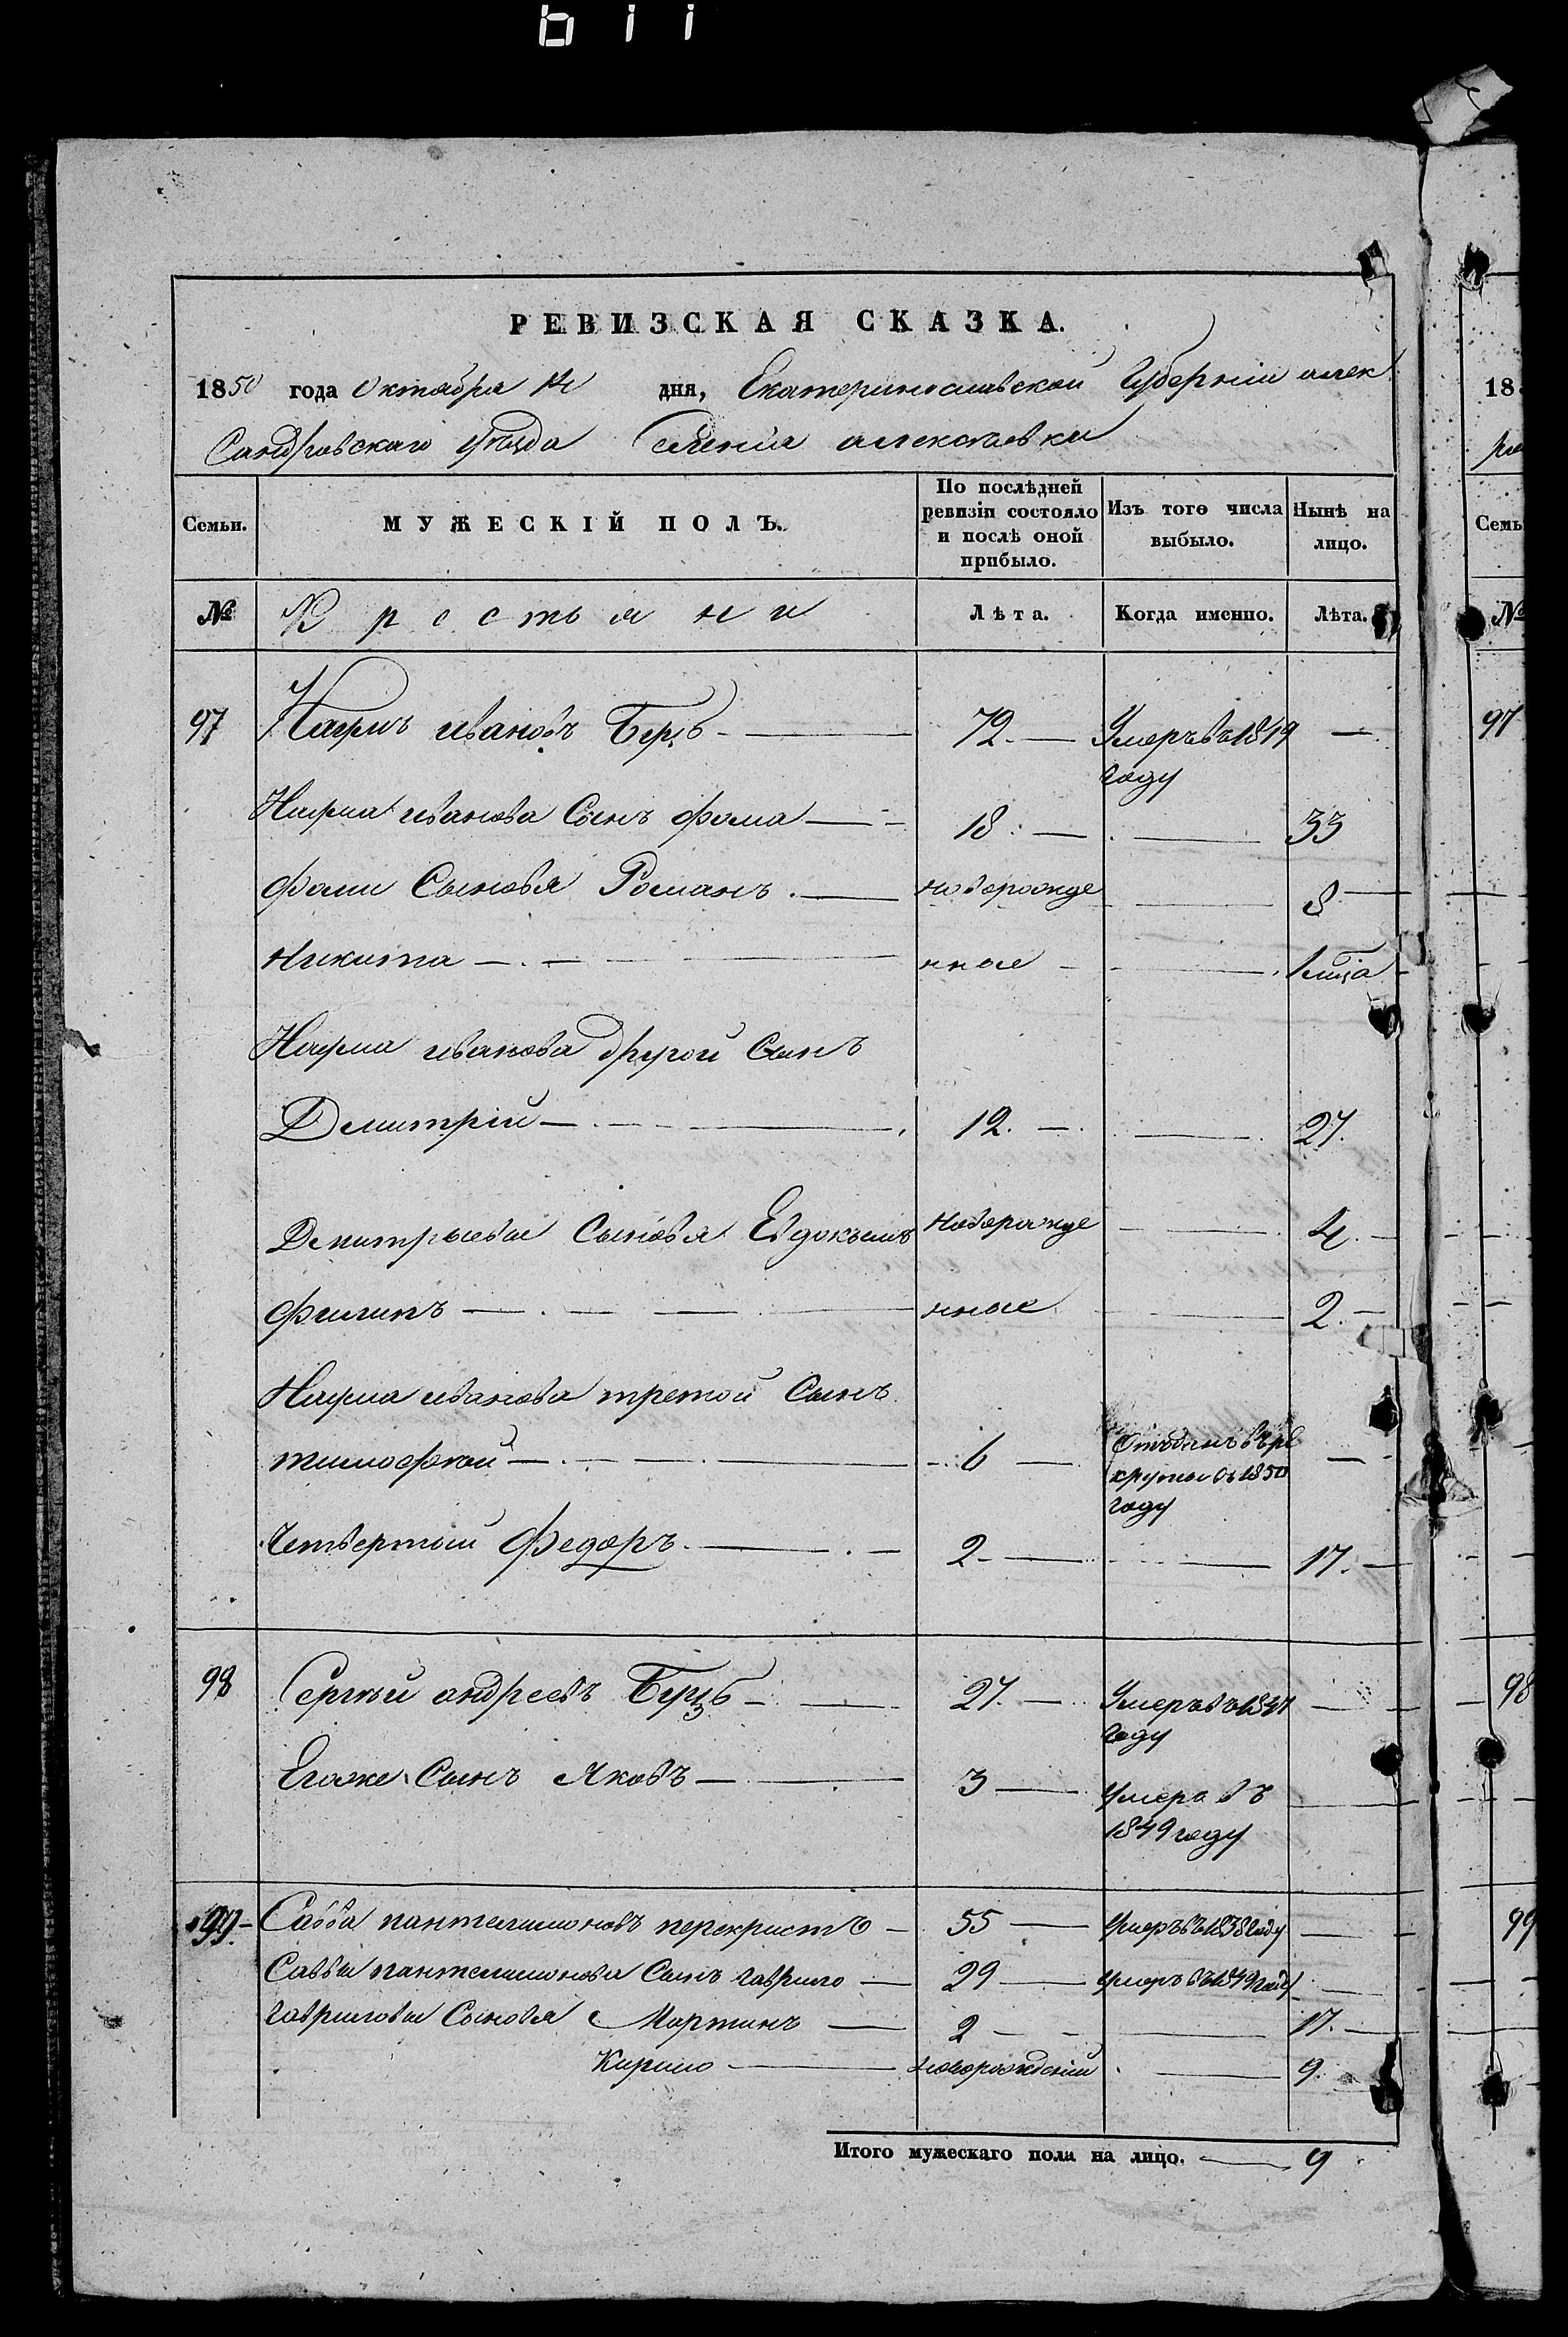 РЕВИЗСКАЯ СКАЗКА.
1850 года Октября дня, Екатеринославской Губерніи алек
Сандровскаго уѣзда Селенія алексѣевки
Семьи. МУЖЕСКІЙ ПОЛЪ. По послѣдней ревизіи состояло и послѣ оной прибыло. Изъ того числа выбыло. Нынѣ на лицо.
№ Крестьяни Лѣта. Когда именно. Лѣта.
97 Наумъ ивановъ 72. Умеръ въ 1849 —
году
Наума иванова Сынъ фома 18 — 33
фомы Сыновья Романъ новорожде — 8
никита нные — 1 мѣца
Наума иванова другой Сынъ
Дмитрій 12. — 27.
Дмитрыевы Сыновья Евдокымъ новорожде — 4
филипъ нные — 2.
Наума иванова третой Сынъ
тимофѣй 6 Отъданъ въ ре —
круты въ 1850
году
Четвертый Федоръ 2 — 17.
98 Сергѣй андреевъ 27. Умеръ въ 1847 —
году
Егоже Сынъ Яковъ 3 умеръ въ —
1849 году
99. Савва пантелимоновъ перекристъ 55 умеръ въ 1838 году —
Саввы пантелимонова Сынъ гаврило 29 умеръ въ 1849 году —
гавриловы Сыновья Мартинъ 2 — 17.
Кирило новорожденій — 9.
Итого мужескаго пола на лицо. 9
18
Семь
№
97
98
99